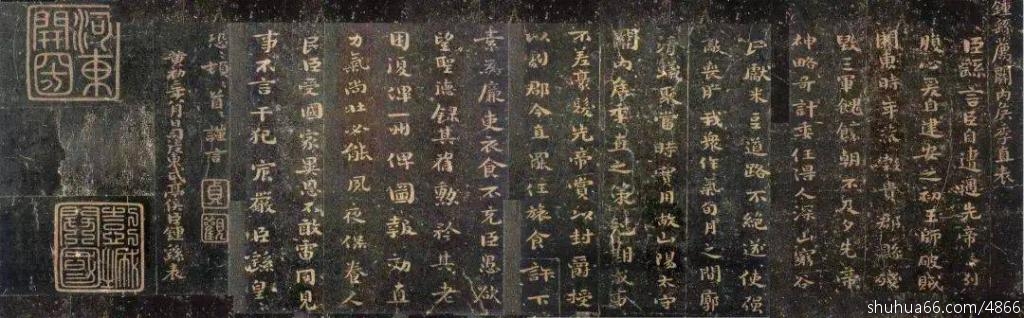 鍾繇薦關內侯季直表
臣繇言臣自遭遇先帝忝列
腹心爰自建安之初王師破賊
關東時年荒穀貴郡縣殘
毀三軍餽饟朝不及夕先帝
神略奇計委任得人深山窮谷
民獻米豆道路不絕遂使強
敵喪膽我眾作氣旬月之間廓
清蟻聚當時實用故山陽太守
關內侯季直之策剋期成事
不差豪髮先帝賞以封爵授
以劇郡今直罷任旅食許下
素為廉吏衣食不充臣愚欲
望聖德錄其舊勳矜其老
困復俾一州俾圖報效直
力氣尚壯必能夙夜保養人
民臣受國家異恩不敢雷同見
事不言干犯宸嚴臣繇皇
恐頓首謹言
貞觀
黃初二年八月日司徒東武亭侯臣鍾繇表
河東
shuhua66.com/4866